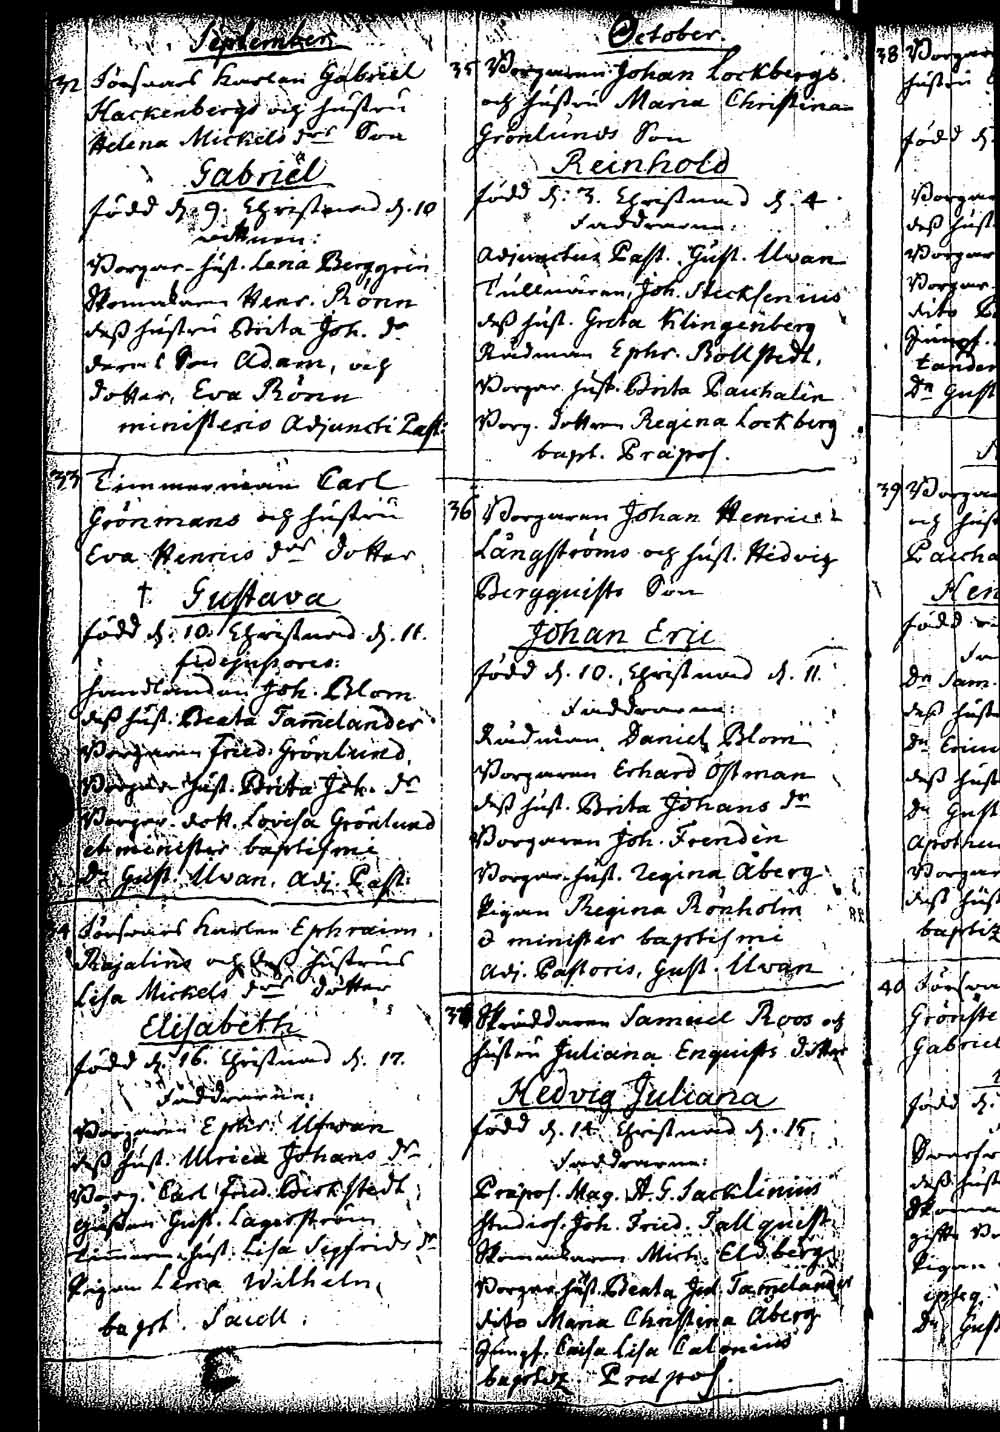 September
32 Torfvars Karlen Gabriel
Hackenbergs och hustru
Helena Mickels drs Son
Gabriël
född d. 9. Christnad d. 10
vittnen:
Borgar-hust. Lena Berggrén
Skomakaren Henr. Rönn
deß hustru Brita Joh. dr
deras Son Adam, och
dotter, Eva Rönn
ministerio Adjuncti Past.
33 Timmerman Carl
Grönmans och hustru
Eva Henrics drs dotter
† Gustava
född d. 10. Christnad d. 11.
fidejussores:
handlanden Joh. Blom
deß hust. Beata Tam̄elander
Borgaren Fried. Grönlund,
Borgare hust. Brita Joh. dr
Borgar dott. Lovisa Grönlund
et minister baptismi
Dn Gust. Uwan. Adj. Past.
34 Torfvars Karlen Ephraim
Rajalins och deß hustrus
Lisa Mickels drs dotter
Elisabeth
född d. 16. Christnad d. 17.
Faddrarne:
Borgaren Ephr. Ufwan
deß hust. Ulrica Johans dr
Borg. Carl Fried. Birkstedt
Gust. Lagerström
Timmerm. hust. Lisa Sigfrids dr
Pigan Lena Wilhelm.
bapt. Sacell.
October.
35 Borgaren Johan Lockbergs
och hustru Maria Christina
Grönlunds Son
Reinhold
född d. 3. Christnad d. 4.
Faddrarne:
Adjunctus Past. Gust. Uwan
Tullnären, Joh. Stecksenius
deß hust. Greta Klingenberg
Rådman Ephr. Bollstedt,
Borgar hust. Brita Paschalin
Borg. dottren Regina Lockberg
bapt. Præpos.
36 Borgaren Johan Henric
Långströms och hust. Hedvig
Bergquists Son
Johan Eric
född d. 10. Christnad d. 11.
Faddrarne:
Rådman Daniel Blom
Borgaren Erhard Östman
deß hust. Brita Johans dr
Borgaren Joh. Frendén
Borgar-hust. Regina Åberg
Pigan Regina Rönholm
& minister baptismi
Adj. Pastoris, Gust. Uwan
37 Skräddaren Samuel Roos och
hustru Juliana Enquists dotter
Hedvig Juliana
född d. 14. Christnad d. 15.
Faddrarne:
Præpos. Mag. A. G. Jacklinius
studios. Joh. Fried. Tallquist
Skomakaren Mich. Eldberg
Borgar hust. Beata Jul. Tam̄elander
dito Maria Christina Åberg
Jungf. Caisa Lisa Calonius
baptiz. Præpos.
38 Borgar
hustru
född d.
Borgar
deß hust
Borgar
Borgar
dito B
Jungf.
tander
Dn Gust
39 Borgar
och hust
Pascha
Hen
född
Dn Sam.
deß hust
deß hust
Dn Gust
Borgar
deß hust
baptiz
40 Torfva
Grönste
Gabriel
född d.
deß hust
Skoma
Pigan
Dn Gust